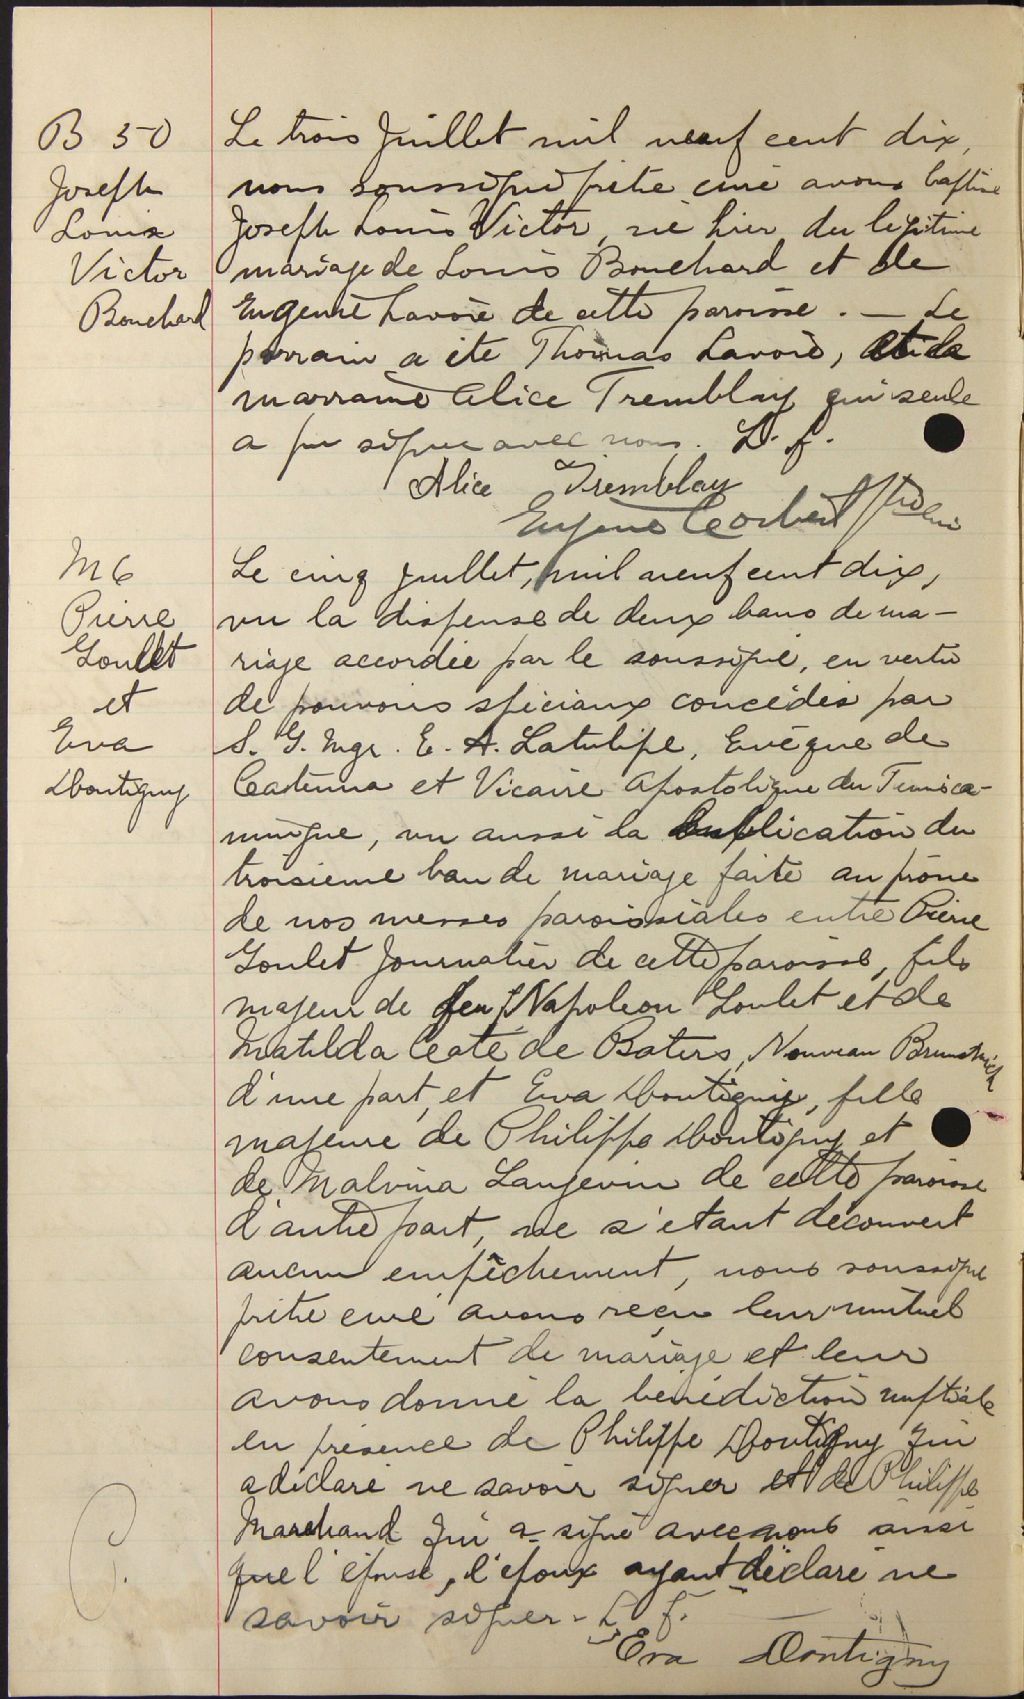 B 50
Joseph
Louis
Victor
Bouchard
Le trois Juillet mil neuf cent dix,
nous soussigné prêtre curé avons baptisé
Joseph Louis Victor, né hier du légitime
mariage de Louis Bouchard et de
Eugenie Lavoie de cette paroisse. — Le
parrain a été Thomas Lavoie, et la
marraine Alice Tremblay qui seule
a pu signer avec nous. L. f.
Alice Tremblay
Eugene Corbeil Ptre Curé
M 6
Pierre
Goulet
et
Eva
Dontigny
Le cinq juillet, mil neuf cent dix,
vu la dispense de deux bans de ma-
riage accordée par le soussigné, en vertu
de pouvoirs spéciaux concédés par
S. G. Mgr. E. A. Latulipe, Evêque de
Catenna et Vicaire Apostolique du Temisca-
mingue, vu aussi la publication du
troisieme ban de mariage faite au prône
de nos messes paroissiales entre Pierre
Goulet Journalier de cette paroisse, fils
majeur de feu Napoleon Goulet et de
Matilda Coté de Baters, Nouveau Brunswick
d'une part, et Eva Dontigny, fille
majeure de Philippe Dontigny et
de Malvina Langevin de cette paroisse
d'autre part, ne s'étant découvert
aucun empêchement, nous soussigné
prêtre curé avons reçu leur mutuel
consentement de mariage et leur
avons donné la bénédiction nuptiale
en présence de Philippe Dontigny qui
a déclaré ne savoir signer et de Philippe
Marchand qui a signé avec nous ainsi
que l'épouse, l'époux ayant déclaré ne
savoir signer. L. f.
Eva Dontigny